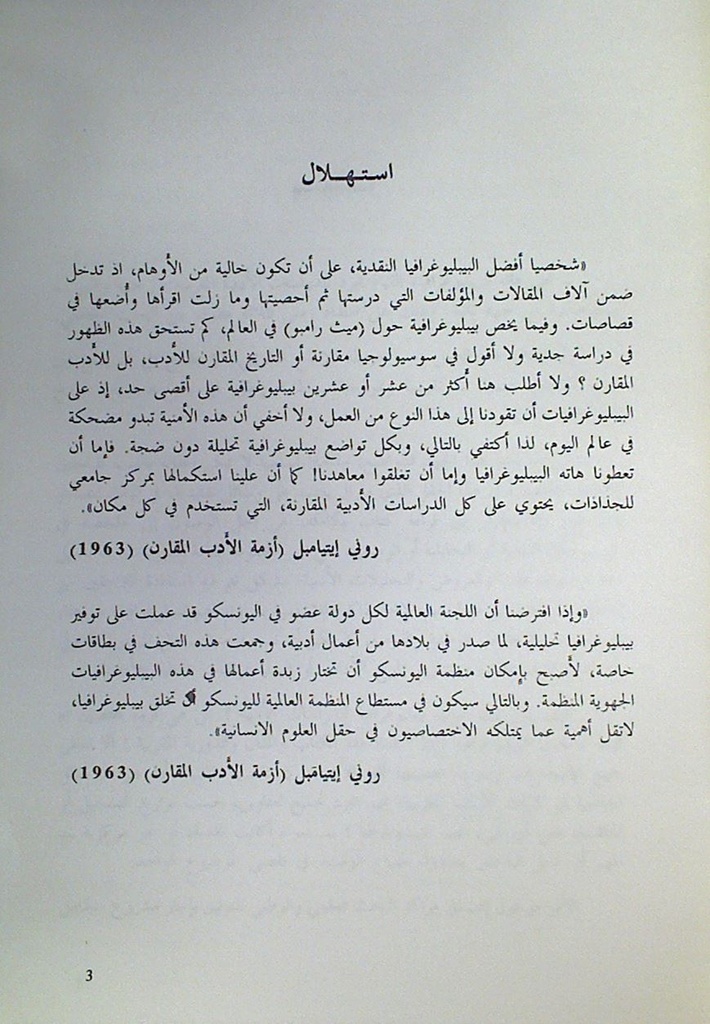 استهلال
«شخصيا أفضل البيبليوغرافيا النقدية، على أن تكون خالية من الأوهام، اذ تدخل
ضمن آلاف المقالات والمؤلفات التي درستها ثم أحصيتها وما زلت اقرأها وأضعها في
قصاصات. وفيما يخص بيبليوغرافية حول (ميث رامبو) في العالم، كم تستحق هذه الظهور
في دراسة جدية ولا أقول في سوسيولوجيا مقارنة أو التاريخ المقارن للأدب، بل للأدب
المقارن ؟ ولا أطلب هنا أكثر من عشر أو عشرين بيبليوغرافية على أقصى حد، إذ على
البيبليوغرافيات أن تقودنا إلى هذا النوع من العمل، ولا أخفي أن هذه الأمنية تبدو مضحكة
في عالم اليوم، لذا أكتفي بالتالي، وبكل تواضع بيبليوغرافية تحليلة دون ضجة. فإما أن
تعطونا هاته البيبليوغرافيا وإما أن تغلقوا معاهدنا! كما أن علينا استكمالها بمركز جامعي
للجذاذات، يحتوي على كل الدراسات الأدبية المقارنة، التي تستخدم في كل مكان».
روني إيتيامبل (أزمة الأدب المقارن) (1963)
«وإذا افترضنا أن اللجنة العالمية لكل دولة عضو في اليونسكو قد عملت على توفير
بيبليوغرافيا تحليلية، لما صدر في بلادها من أعمال أدبية، وجمعت هذه التحف في بطاقات
خاصة، لأصبح بإمكان منظمة اليونسكو أن تختار زبدة أعمالها في هذه البيبليوغرافيات
الجهوية المنظمة. وبالتالي سيكون في مستطاع المنظمة العالمية لليونسكو أن تخلق بيبليوغرافيا،
لاتقل أهمية عما يمتلكه الاختصاصيون في حقل العلوم الانسانية».
روني إيتيامبل (أزمة الأدب المقارن) (1963)
3